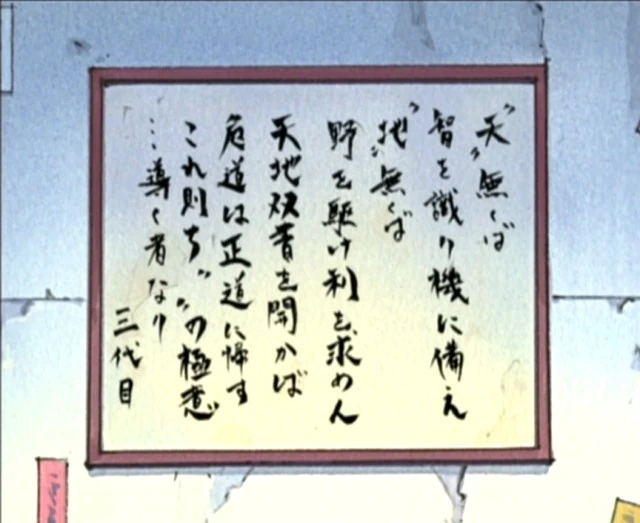 "天"無くば
智を識り機に備え
"地"無くば
野を駆け利を求めん
天地双書を開かば
危道は正道に帰す
これ則ち""の極意
…導く者なり
三代目